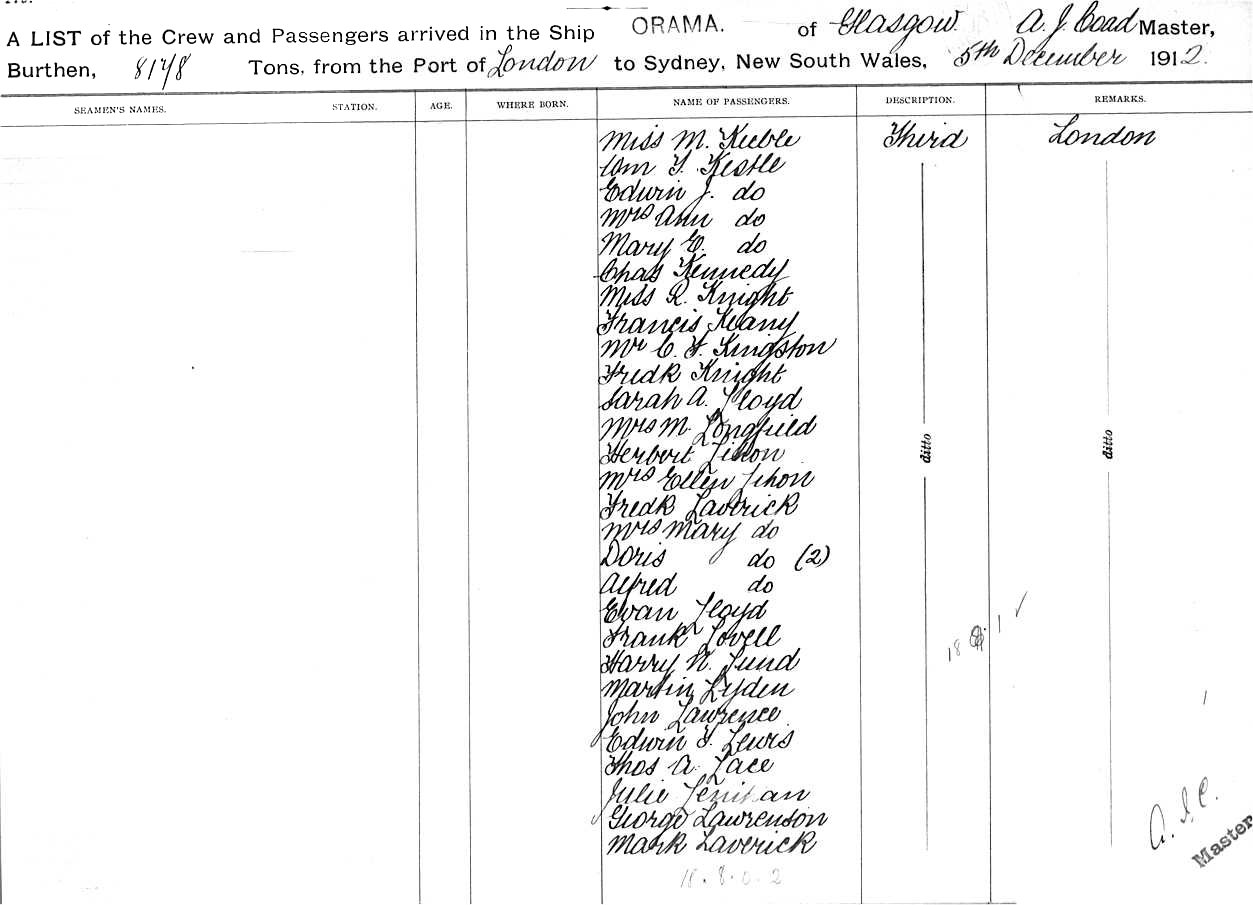 A LIST of the Crew and Passengers arrived in the Ship ORAMA. of Glasgow. A. J. Coad Master,
Burthen, 8148 Tons, from the Port of London to Sydney, New South Wales, 5th December 1912.
SEAMEN'S NAMES. STATION. AGE. WHERE BORN. NAME OF PASSENGERS. DESCRIPTION. REMARKS.
Miss M. Keeble Third London
Wm Y. Kestle
Edwin J. do
Mrs Ann do
Mary E. do
Chas Kennedy
Miss R. Knight
Francis Keany
Mr C. Y. Kingston
Fredk Knight
Sarah A. Lloyd
Mrs M. Longfield ditto ditto
Herbert
Mrs Ellen
Fredk Laverick
Mrs Mary do
Doris do (2)
Alfred do
Evan Lloyd
Frank Lovell
Harry N. Lund
Martin Lyden
John Lawrence
Edwin Y. Lewis
Thos A. Lace
Julie Lenihan
George Lawrenson
Mark Laverick
18 8 1 ✓
A. J. C.
Master
18. 8. 0. 2